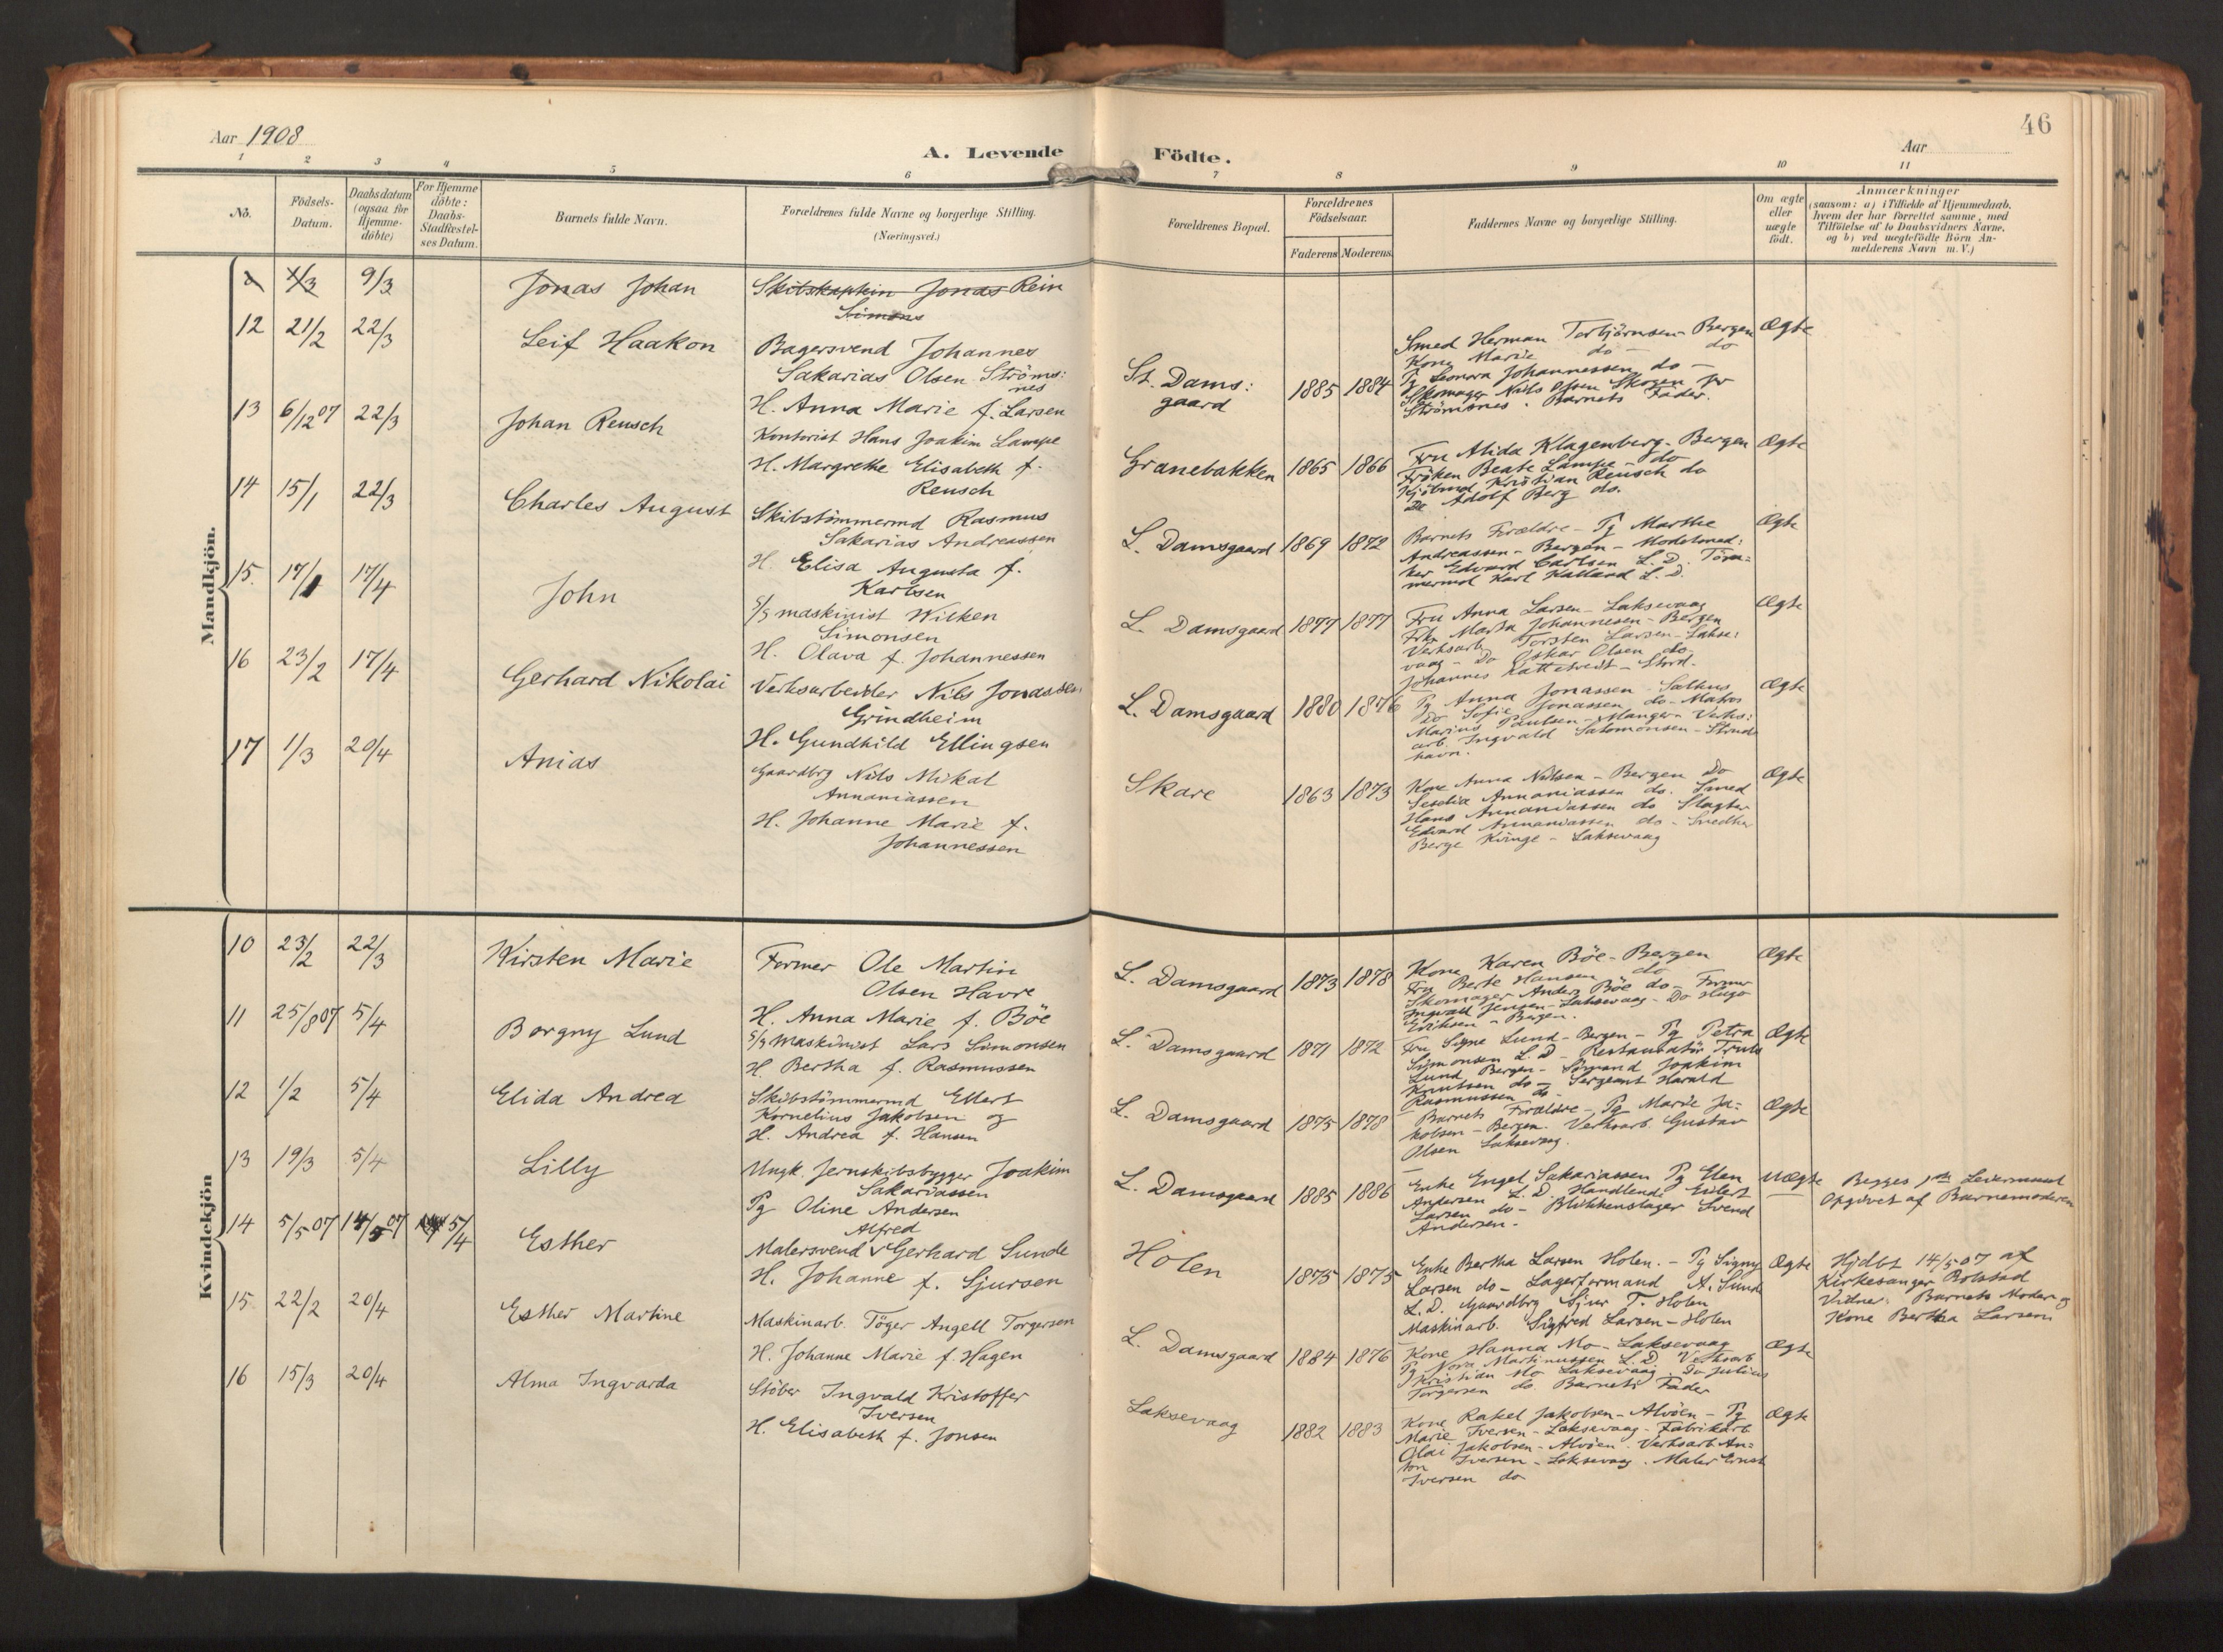 Aar 1908
A. Levende Födte.
Aar
46
1 2 3 4 5 6 7 8 9 10 11
No.
Födsels-
Datum.
Daabsdatum
(ogsaa for
Hjemme-
döbte)
For Hjemme
döbte:
Daabs-
Stadfæstel-
ses Datum.
Barnets fulde Navn.
Forældrenes fulde Navne og borgerlige Stilling.
(Næringsvei.)
Forældrenes Bopæl.
Forældrenes
Födselsaar.
Faderens Moderens
Faddernes Navne og borgerlige Stilling.
Om ægte
eller
uægte
födt.
Anmærkninger
(saasom: a) i Tilfælde af Hjemmedaab,
hvem der har forrettet samme, med
Tilföielse af to Daabsvidners Navne,
og b) ved uægtefödte Börn An-
melderens Navn m. V.)
Mandkjön.
9/3 Jonas Johan
Skibskaptein Jonas Rein
Simons
12 21/2 22/3 Leif Haakon
Bagersvend Johannes
Sakarias Olsen Ströms:
nes
H. Anna Marie f. Larsen
St. Dams:
gaard
1885 1884
Smed Herman Torbjörnsen - Bergen
Kone Marie do - do
Pg Leonora Johannessen do -
Skomager Nils Olsen Skogen
Strömsnes. Barnets Fader.
Ægte
13 6/12 07 22/3 Johan Reusch
Kontorist Hans Joakim Lampe
H. Margrethe Elisabeth f.
Reusch
Granebakken 1865 1866
Fru Alida Klagenberg - Bergen
Fröken Beate Lampe - do
Kjöbmd Kristian Reusch do
Do Adolf Berg do.
Ægte
14 15/1 22/3 Charles August
Skibstömmermd Rasmus
Sakarias Andreassen
H. Elisa Augusta f.
Karlsen
L. Damsgaard 1869 1872
Barnets Forældre - Pg Marthe
Andreassen - Bergen - Modelsned:
ker Edvard Carlsen L. D. Töm-
mermd Karl Kalland L. D.
Ægte
15. 17/1 17/4 John
S/S maskinist Wilken
Simonsen
H. Olava f. Johannessen
L. Damsgaard 1877 1877
Fru Anna Larsen - Laksevaag
Frk. Marta Johannesen - Bergen
Verksarb. Torsten Larsen - Lakse:
vaag - Do Oskar Olsen do.
Johannes - Stord.
Ægte
16 23/2 17/4 Gerhard Nikolai
Verksarbeider Nils Jonassen
Grindheim
H. Gundhild Ellingsen
L. Damsgaard 1880 1876
Pg Anna Jonassen - Salhus
Do Sofie Jonassen do - Matros
Marius Paulsen - Manger - Verks:
arb. Ingvald Salomonsen - Strud
havn.
Ægte
17 1/3 20/4 Anias
Gaardbrg Nils Mikal
Annaniassen
H. Johanne Marie f.
Johannessen
Skare 1863 1873
Kone Anna Nilsen - Bergen Do
Seselia Annaniassen do. Smed
Hans Annaniassen do Slagter
Edvard Annaniassen do - Smedker
Berge Kvinge - Laksevaag
Ægte
Kvindekjön
10 23/2 22/3 Kirsten Marie
Former Ole Martin
Olsen Havre
H. Anna Marie f. Böe
L. Damsgaard 1873 1878
Kone Karen Böe - Bergen
Fru Berte Hansen do
Skomager Anders Böe do - Former
Ingvald Jensen - Laksevaag - Do Hugo
Eriksen - Bergen.
Ægte
11 25/8 07 5/4 Borgny Lund
S/S maskinist Lars Simonsen
H. Bertha f. Rasmussen
L. Damsgaard 1871 1872
Fru Signe Lund - Bergen - Pg Petra
Simonsen L. D - Restauratör Truls
Lund Bergen - Sömand Joakim
Knutsen do - Sergeant Harald
Rasmussen do -
Ægte
12 1/2 5/4 Elida Andrea
Skibstömmermd Ellert
Kornelius Jakobsen og
H. Andrea f. Hansen
L. Damsgaard 1875 1878
Barnets Forældre - Pg Marie Ja:
kobsen - Bergen. Verksarb. Gustav
Olsen Laksevaag.
Ægte
13 19/3 5/4 Lilly
Ungk. Jernskibsbygger Joakim
Sakariassen
Pg Oline Andersen
L. Damsgaard 1885 1886
Enke Engel Sakariassen Pg Elen
Andersen L. D. Handlende Eilert
Larsen do - Blikkenslager Svend
Andersen -
Uægte
Begges 1ste Leiermaal
Opgivet af Barnemoderen
14 5/5 07 14/5 07 5/4 Esther
Alfred
Malersvend Gerhard Sunde
H. Johanne f. Sjursen
Holen 1875 1875
Enke Bertha Larsen Holen. - Pg Signy
Larsen do - Lagerformand A. Sunde
L. D. Gaardbrg Sjur T. Holen
Maskinarb. Sigfred Larsen - Holen
Ægte
Hjdbt 14/5 07 af
Kirkesanger Rolstad
Vidner: Barnets Moder og
Kone Bertha Larsen
15. 22/2 20/4 Esther Martine
Maskinarb. Töger Angell Torgersen
H. Johanne Marie f. Hagen
L. Damsgaard 1884 1876
Kone Hanna Mo - Laksevaag
Pg Nora Martinussen L. D. Verksarb
Kristian Mo Laksevaag Do Julius
Torgersen do. Barnets Fader
Ægte
16 15/3 20/4 Alma Ingvarda
Stöber Ingvald Kristoffer
Iversen
H. Elisabeth f. Jonsen
Laksevaag 1882 1883
Kone Rakel Jakobsen - Alvöen - Pg
Marie Iversen - Laksevaag - Fabrikarb
Olai Jakobsen - Alvöen. Verksarb An:
ton Iversen - Laksevaag. Maler Ernst
Iversen do
Ægte